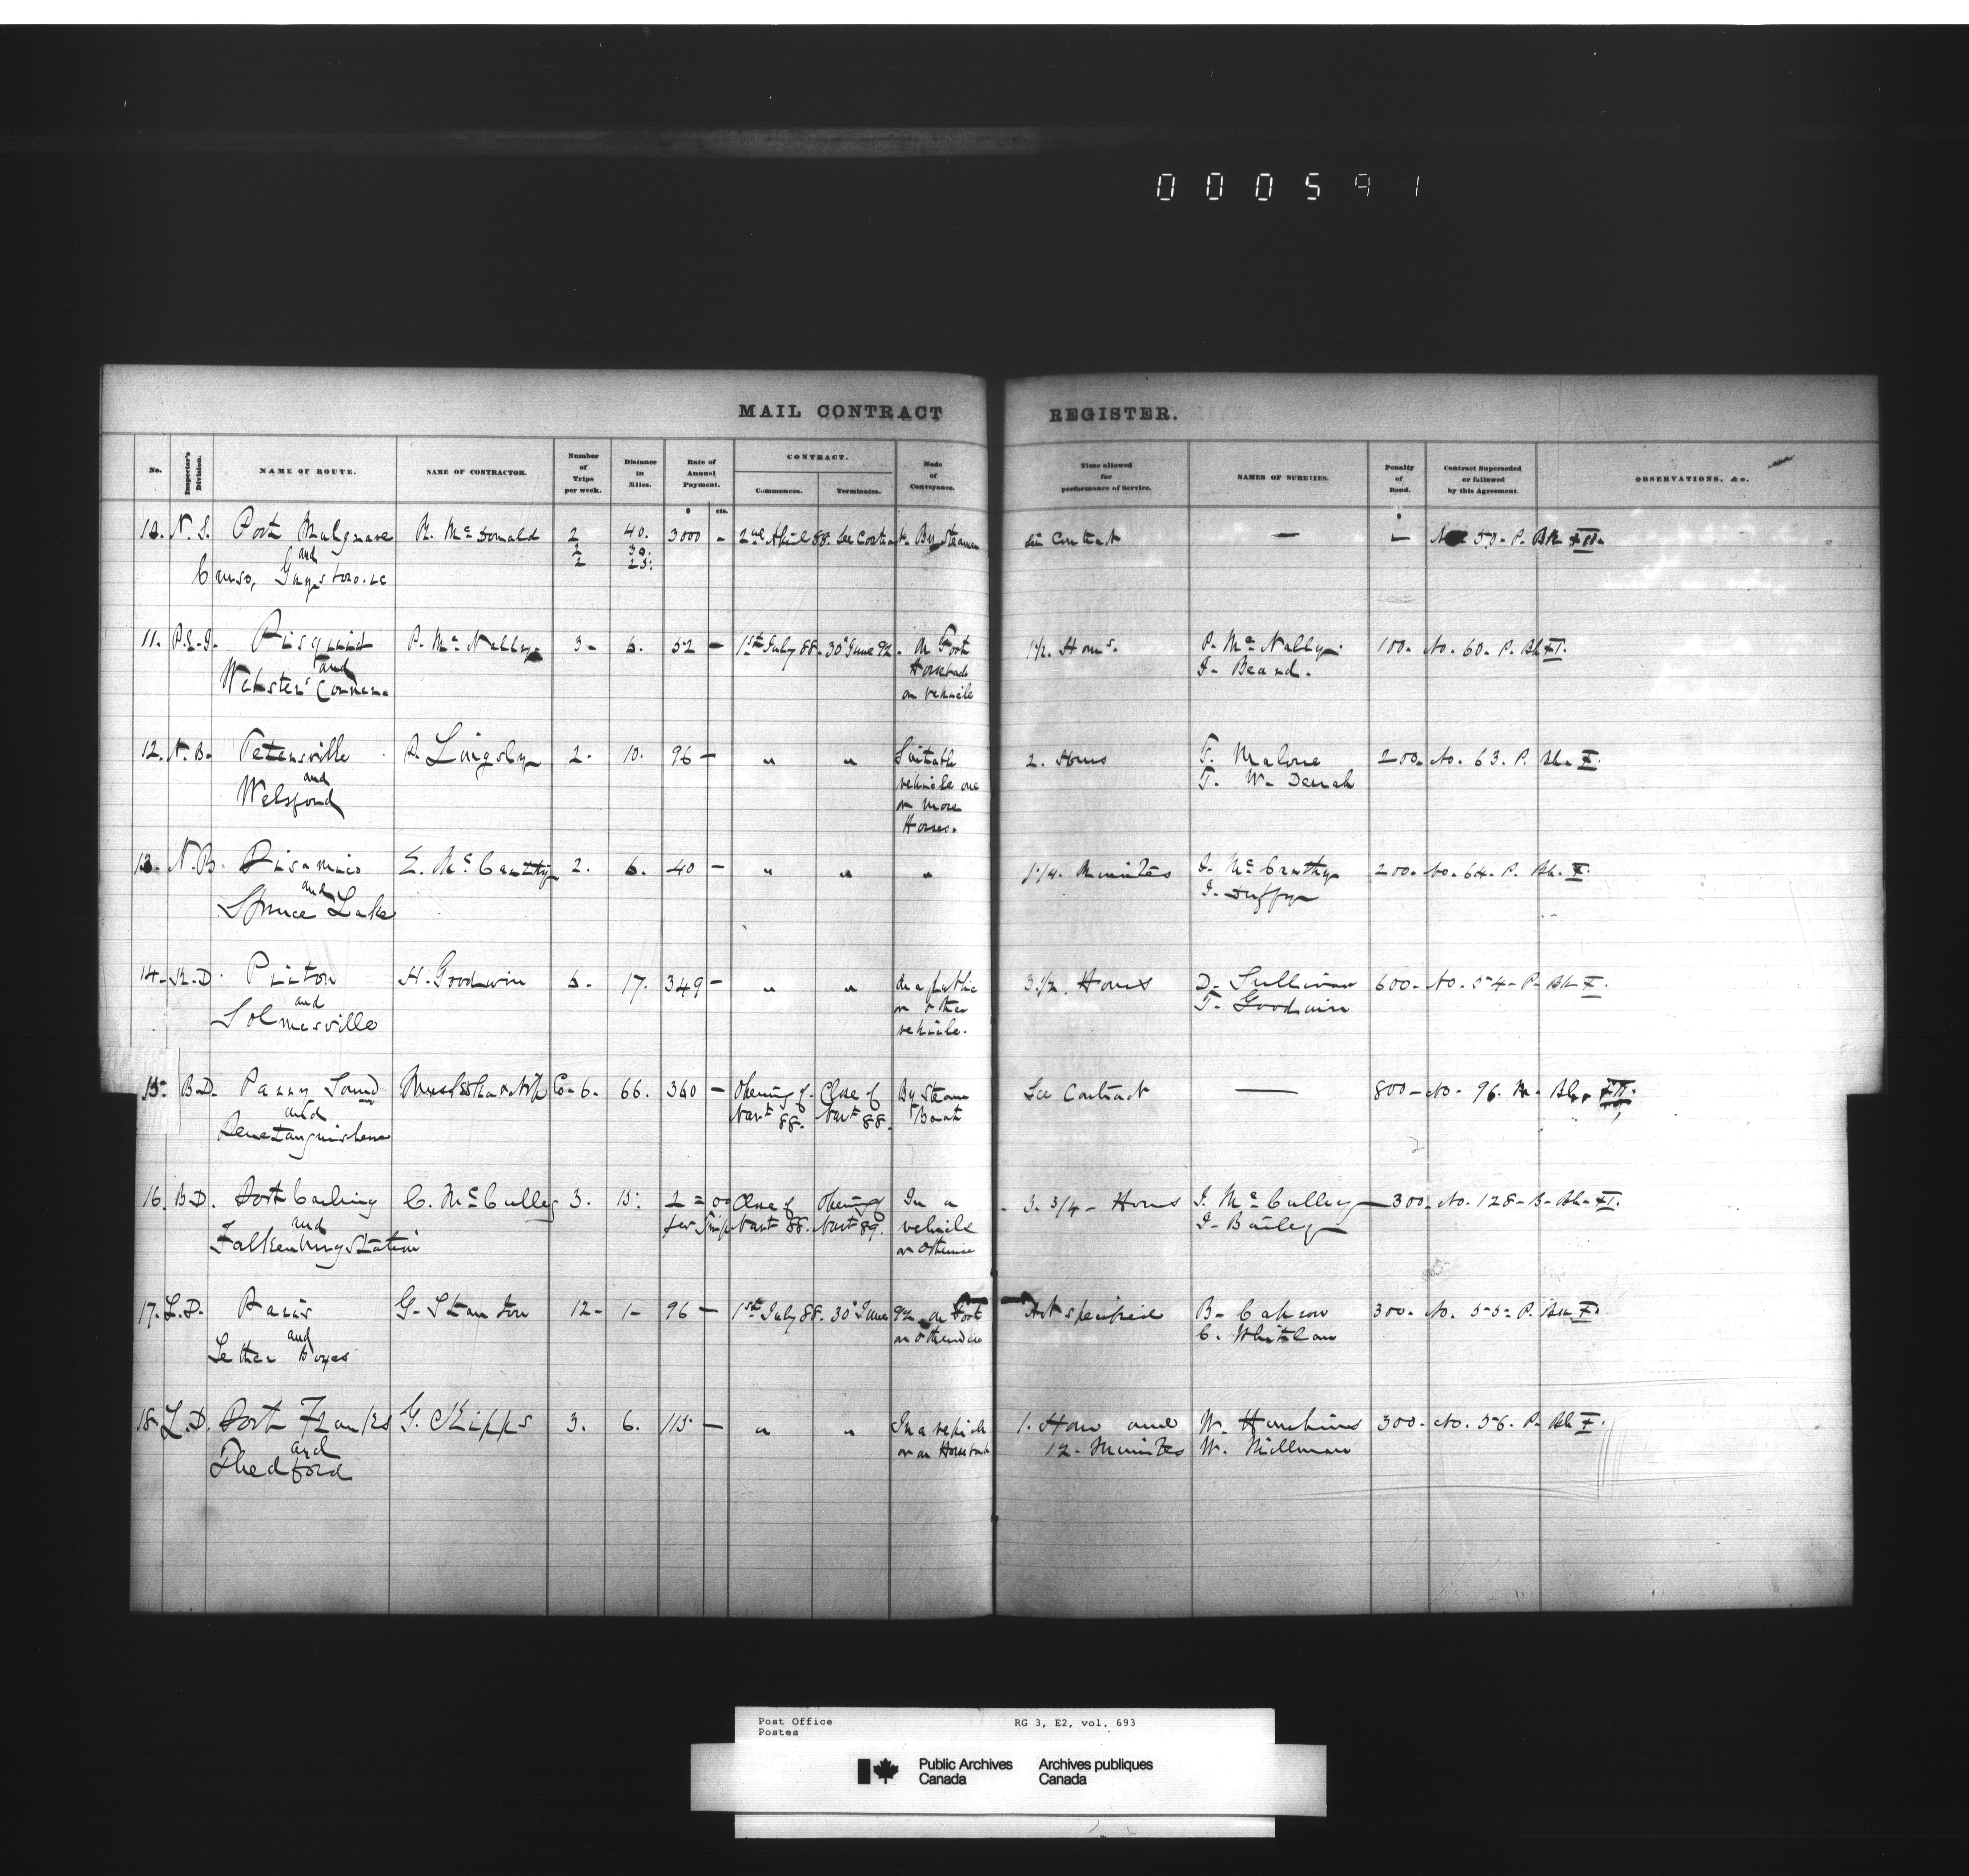 000591
MAIL CONTRACT REGISTER.
No. Inspector's Division. NAME OF ROUTE. NAME OF CONTRACTOR. Number of Trips per week. Distance in Miles. Rate of Annual Payment. CONTRACT. Commences. Terminates. Mode of Conveyance. Time allowed for performance of Service. NAMES OF SURETIES. Penalty of Bond. Contract Superseded or followed by this Agreement. OBSERVATIONS, &c.
$ cts. $
10. N.S. Port Mulgrave R. McDonald 2 40. 3000 - 2nd April 88. See Contract. By Steamer See Contract — — 50. P. Bk XII.
and 2 30.
Canso, Guysboro. &c 2 25.
11. P.E.I. Pisquid P. McNally 3- 6. 52 - 1st July 88. 30 June 92. On Foot 1 1/2. Hours. P. McNally. 100. No. 60. P. Bk XI.
and Horseback J. Beard.
Webster's Corner. or vehicle
12. N.B. Petersville R. Lingsley 2. 10. 96 - " " Suitable 2. Hours T. Malone 200. No. 63. P. Bk. X.
and vehicle one T. W.
Welsford or more
Horses.
13. N.B. Pisarinco E. McCarthy 2. 6. 40 - " " " 1.1/4. Minutes J. McCarthy 200. No. 64. P. Bk. X.
and J. Duffy
Spruce Lake
14. K.D. Picton H. Goodwin 6. 17. 349 - " " In a public 3.1/2. Hours D. Sullivan 600. No. 54. P. Bk X.
and or other T. Goodwin
Solmesville vehicle.
15. B.D. Parry Sound Muskoka & Nip Co. 6. 66. 360 - Opening of Close of By Steam See Contract — 800 - No. 96. M. Bk. XII.
and Navt 88. Navt 88. Boat
Penetanguishene
16. B.D. Port Carling C. McCulley 3. 15. 2 = 00 Close of Opening of In a 3. 3/4 - Hours J. McCulley 300. No. 128. B. Bk. XI.
and per Trip Navt 88. Navt 89. vehicle J. Bailey
Falkenburg Station or otherwise
17. L.D. Paris G. Stanton 12. 1- 96 - 1st July 88. 30 June 92. On Foot Not specified B. 300. No. 55. P. Bk X.
and or otherwise C. Whitlaw
Letter Boxes
18. L.D. Port Franks G. Skipps 3. 6. 115 - " " In a vehicle 1. Hour and W. Hawkins 300. No. 56. P. Bk X.
and or on Horseback 12. Minutes W. Millman
Thedford
Post Office RG 3, E2, vol. 693
Postes
Public Archives Archives publiques
Canada Canada